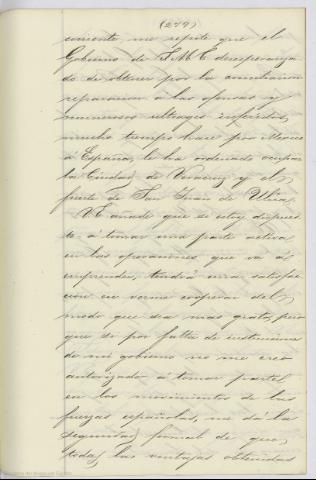 (277)
corriente me repite que el
Gobierno de S.M.C. desesperanza
do de obtener por la conciliacion
reparacion a las ofensas y
numerosos ultrages inferidos,
mucho tiempo hace por Mexico
á España, le ha ordenado ocupar
la Ciudad de Veracruz y el
fuerte de San Juan de Ulúa.
VE añade que si estoy dispues
to á tomar una parte activa
en las operaciones que va á
emprender, tendrá una satisfac
cion en verme cooperar del
modo que sea mas grato, pero
que si por falta de instrucciones
de mi gobierno no me creo
autorizado á tomar parte
en los movimientos de las
fuerzas españolas, me dá la
seguridad formal de que,
todas las ventajas obtenidas